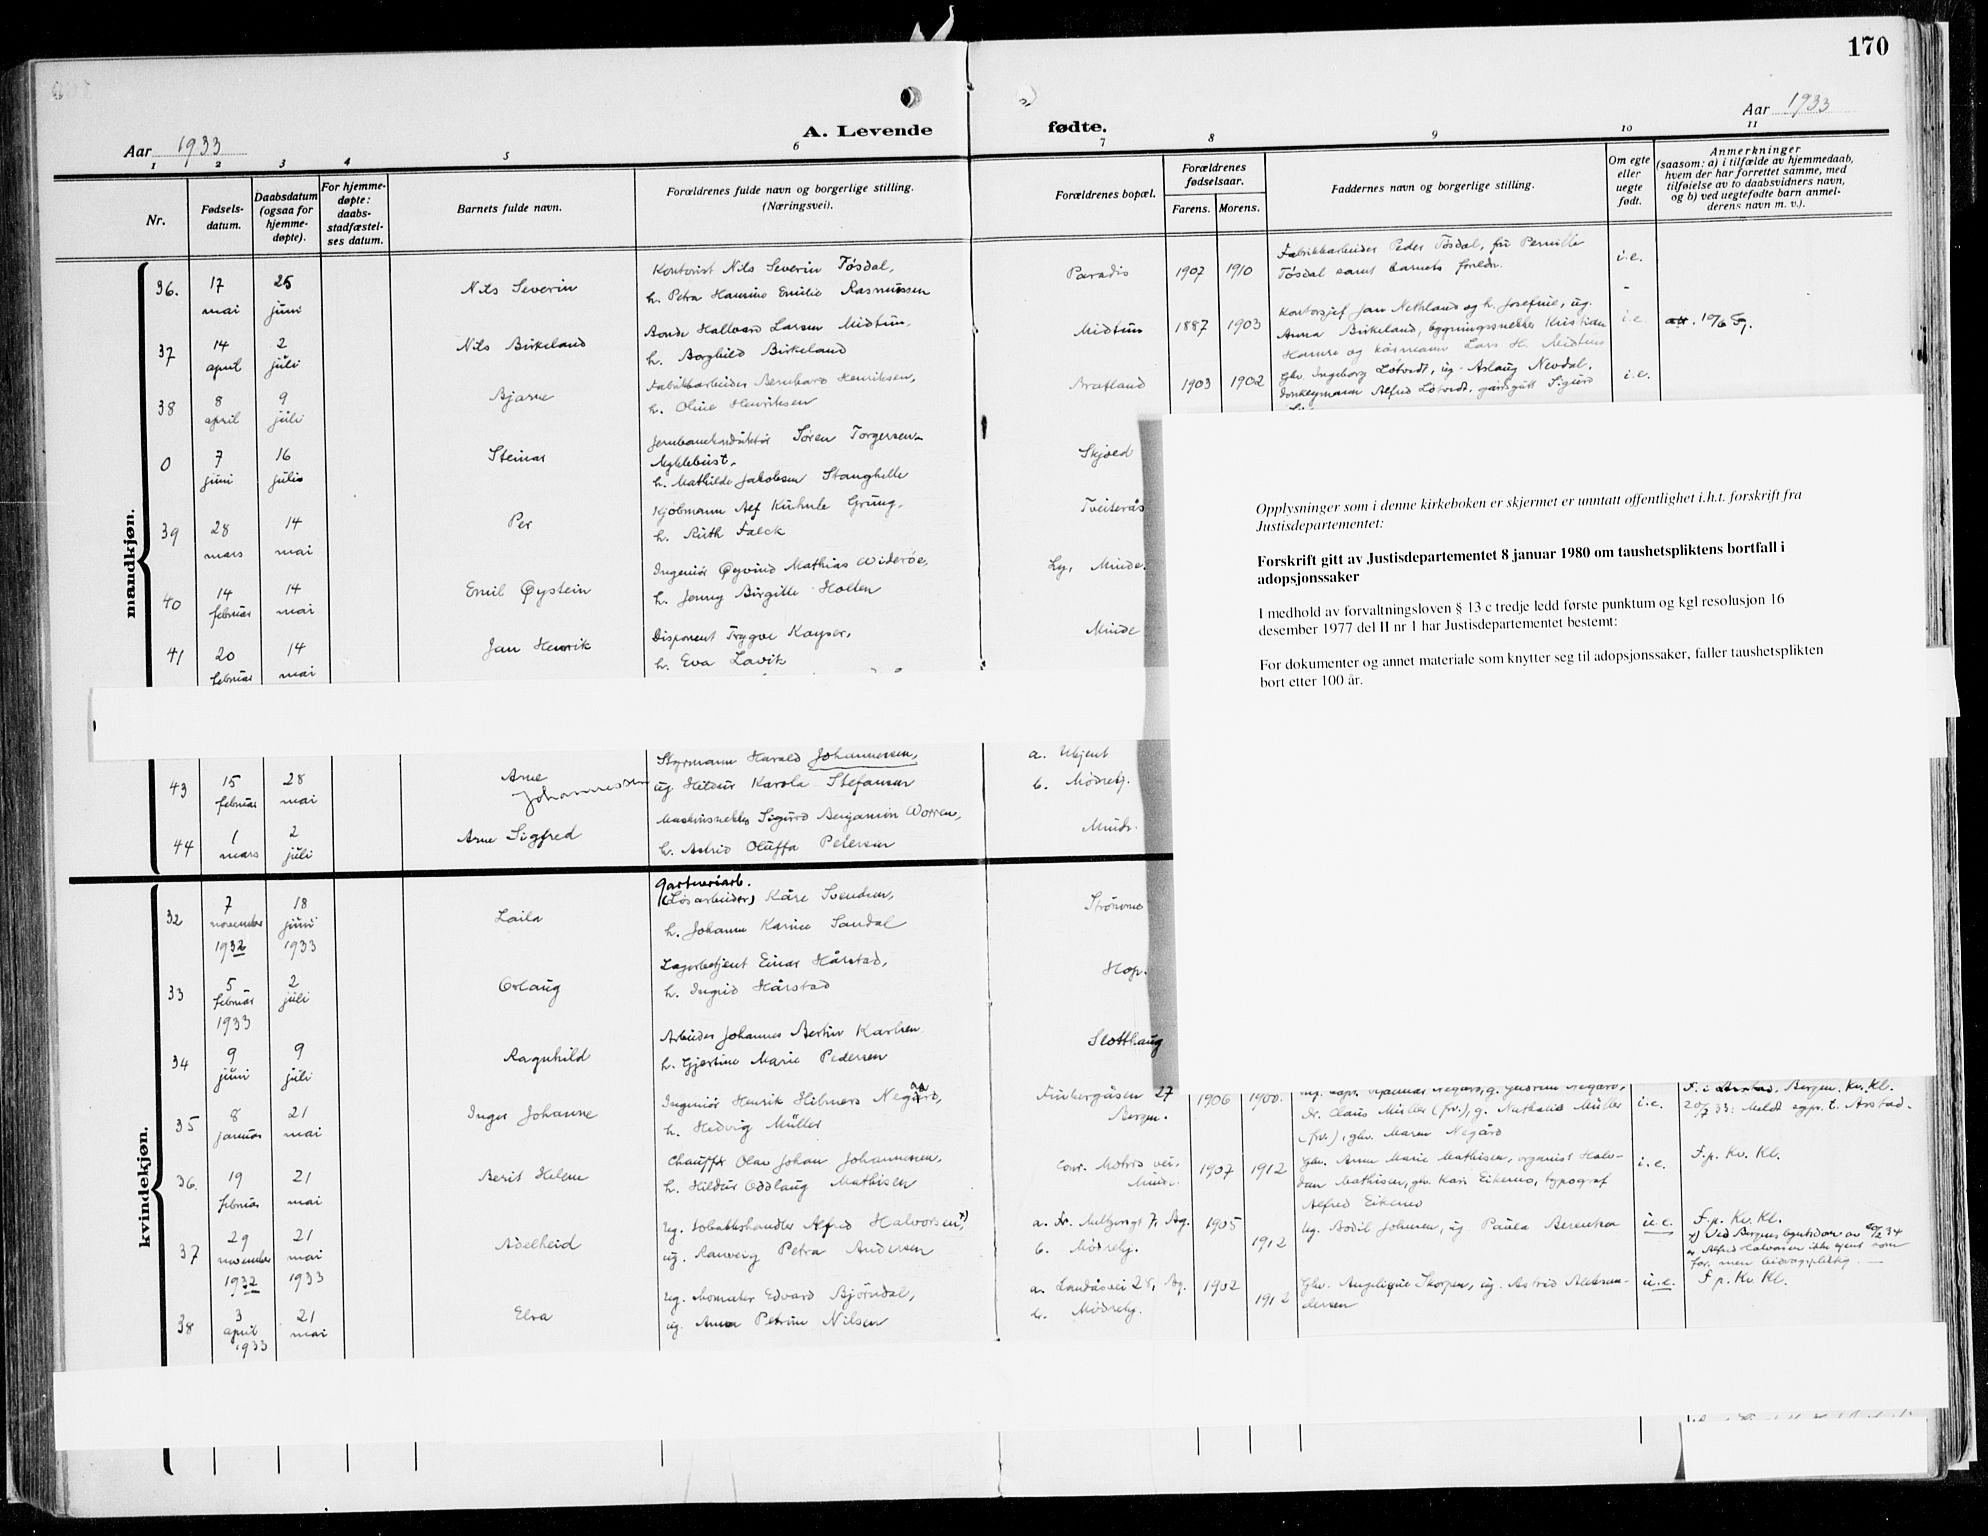 170
Aar 1933
A. Levende fødte.
Aar 1933
1 2 3 4 5 6 7 8 9 10 11
Nr.
Fødsels-
datum.
Daabsdatum
(ogsaa for
hjemme-
døpte).
For hjemme-
døpte:
daabs-
stadfæstel-
ses datum.
Barnets fulde navn.
Forældrenes fulde navn og borgerlige stilling.
(Næringsvei).
Forældrenes bopæl.
Forældrenes
fødselsaar.
Farens. Morens.
Faddernes navn og borgerlige stilling.
Om egte
eller
uegte
født.
Anmerkninger
(saasom: a) i tilfælde av hjemmedaab,
hvem der har forrettet samme, med
tilføielse av to daabsvidners navn,
og b) ved uegtefødte barn anmel-
derens navn m. v.).
mandkjøn.
36. 17 mai 25 juni Nils Severin
Kontorist Nils Severin Tøsdal,
h. Petra Hamine Emilie Rasmussen
Paradis 1907 1910
Fabrikkarbeider Peder Tøsdal, fru Pernille
Tøsdal samt barnets foreldre.
i.e.
37 14 april 2 juli Nils Birkeland
Bonde Hallvard Larsen Midtun,
h. Borghild Birkeland
Midtun 1887 1903
Kontorsjef Jan Nethland og h. Josefine, ug.
Anna Birkeland, bygningssnekker Kristian
Hamre og kjøpmann Lars H. Midtun
i.e.
38 8 april 9 juli Bjarne
Fabrikkarbeider Bernhard Henriksen,
h. Oline Henriksen
Bratland 1903 1902
Ghv. Ingeborg Løtvedt, ug. Aslaug Nevdal,
donkeymann Alfred Løtvedt, gårdsgutt Sigurd
i.e.
0 7 juni 16 juli Steinar
Jernbanekonduktør Søren Torgersen
Myklebust,
h. Mathilde Jakobsen Stanghelle
Skjold
39 28 mars 14 mai Per
Kjøbmann Alf Kuhnle Grung,
h. Ruth Falck
Tveiterås
40 14 februar 14 mai Emil Øystein
Ingeniør Øyvind Mathias Widerøe,
h. Jenny Birgitte Holten
Minde.
41 20 februar 14 mai Jan Henrik
Disponent Trygve Kayser,
h. Eva Lavik
Minde
Opplysninger som i denne kirkeboken er skjermet er unntatt offentlighet i.h.t. forskrift fra
Justisdepartementet:
Forskrift gitt av Justisdepartementet 8 januar 1980 om taushetspliktens bortfall i
adopsjonssaker
I medhold av forvaltningsloven § 13 c tredje ledd første punktum og kgl resolusjon 16
desember 1977 del II nr 1 har Justisdepartementet bestemt:
For dokumenter og annet materiale som knytter seg til adopsjonssaker, faller taushetsplikten
bort etter 100 år.
43 15 februar 28 mai Arne Johannessen
Styrmann Harald Johannessen,
ug. Hildur Karola Stefansen
a. Ukjent
b. Mødrehj.
44 1 mars 2 juli Arne Sigfred
Maskinsnekker Sigurd Benjamin Worren,
h. Astrid Oluffa Petersen
Minde.
kvindekjøn.
32 7 november 1932 18 juni 1933 Laila
gartneriarb.
(Løsarbeider) Kåre Svendsen,
h. Johanne Karine Sandal
Strømme
33 5 februar 1933 2 juli Orlaug
Lagerbetjent Einar Hårstad,
h. Ingrid Hårstad
Hop.
34 9 juni 9 juli Ragnhild
Arbeider Johannes Bertin Karlsen
h. Gjertine Marie Pedersen
Slotthaug
35 8 januar 21 mai Inger Johanne
Ingeniør Henrik Hilmers Negård,
h. Hedvig Müller
Finbergåsen 27
Bergen.
1906 1900.
Dr. Claus Müller (frv.), g. Nathalie Müller
(frv.), ghv. Maren Negård
i.e.
F. i Årstad. Bergen. Kv. Kl.
20/7 33: Meldt sgpr. t. Årstad.
36. 19 februar 21 mai Berit Helene
Chauffør Olav Johan Johannessen,
h. Hildur Oddlaug Mathisen
Conr. Mohrs vei,
Minde.
1907 1912
Ghv. Anne Marie Mathisen, organist Halv-
dan Mathisen, ghv. Kari Eikemo, typograf
Alfred Eikemo
i.e.
F.p. Kv. Kl.
37 29 november 1932 21 mai 1933 Adelheid
ug. tobakkshandler Alfred Halvorsen,
ug. Ranveig Petra Andersen
a. Fr. Meltzersgt 7, Bg.
b. Mødrehj.
1905 1912
ug. Bodil Johnsen, ug. Paula Berentsen
u.e.
F.p. Kv. Kl.
38 3 april 1933 21 mai Elva
ug. Momaker Edvard Bjørndal,
ug. Anna Petrine Nilsen
a. Landåsvei 28, Bg.
b. Mødrehj.
1902 1912
Ghv. Angelique Skorpen, ug. Astrid Aleksan-
dersen
u.e.
F.p. Kv. Kl.